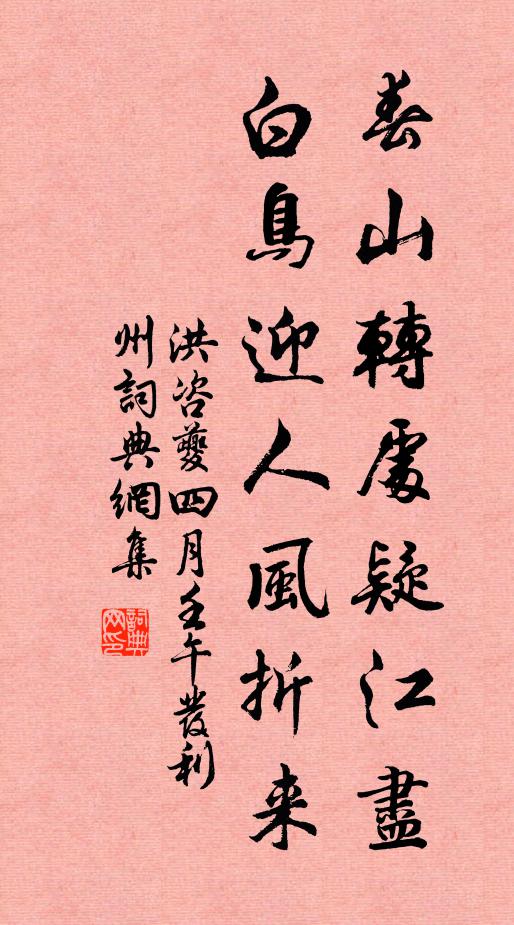 春山轉處疑江盡
白鳥迎人風折来
洪咨夔四月壬午發利
州詞典網集
詞典
网印